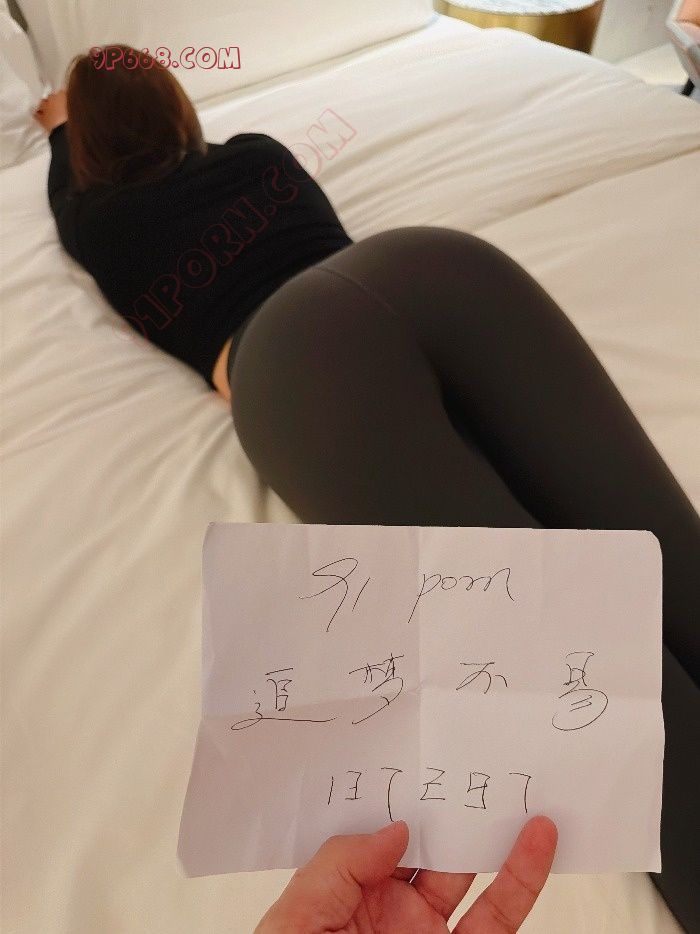 9P668.COM
91PORN.COM
91 porn
追梦不易